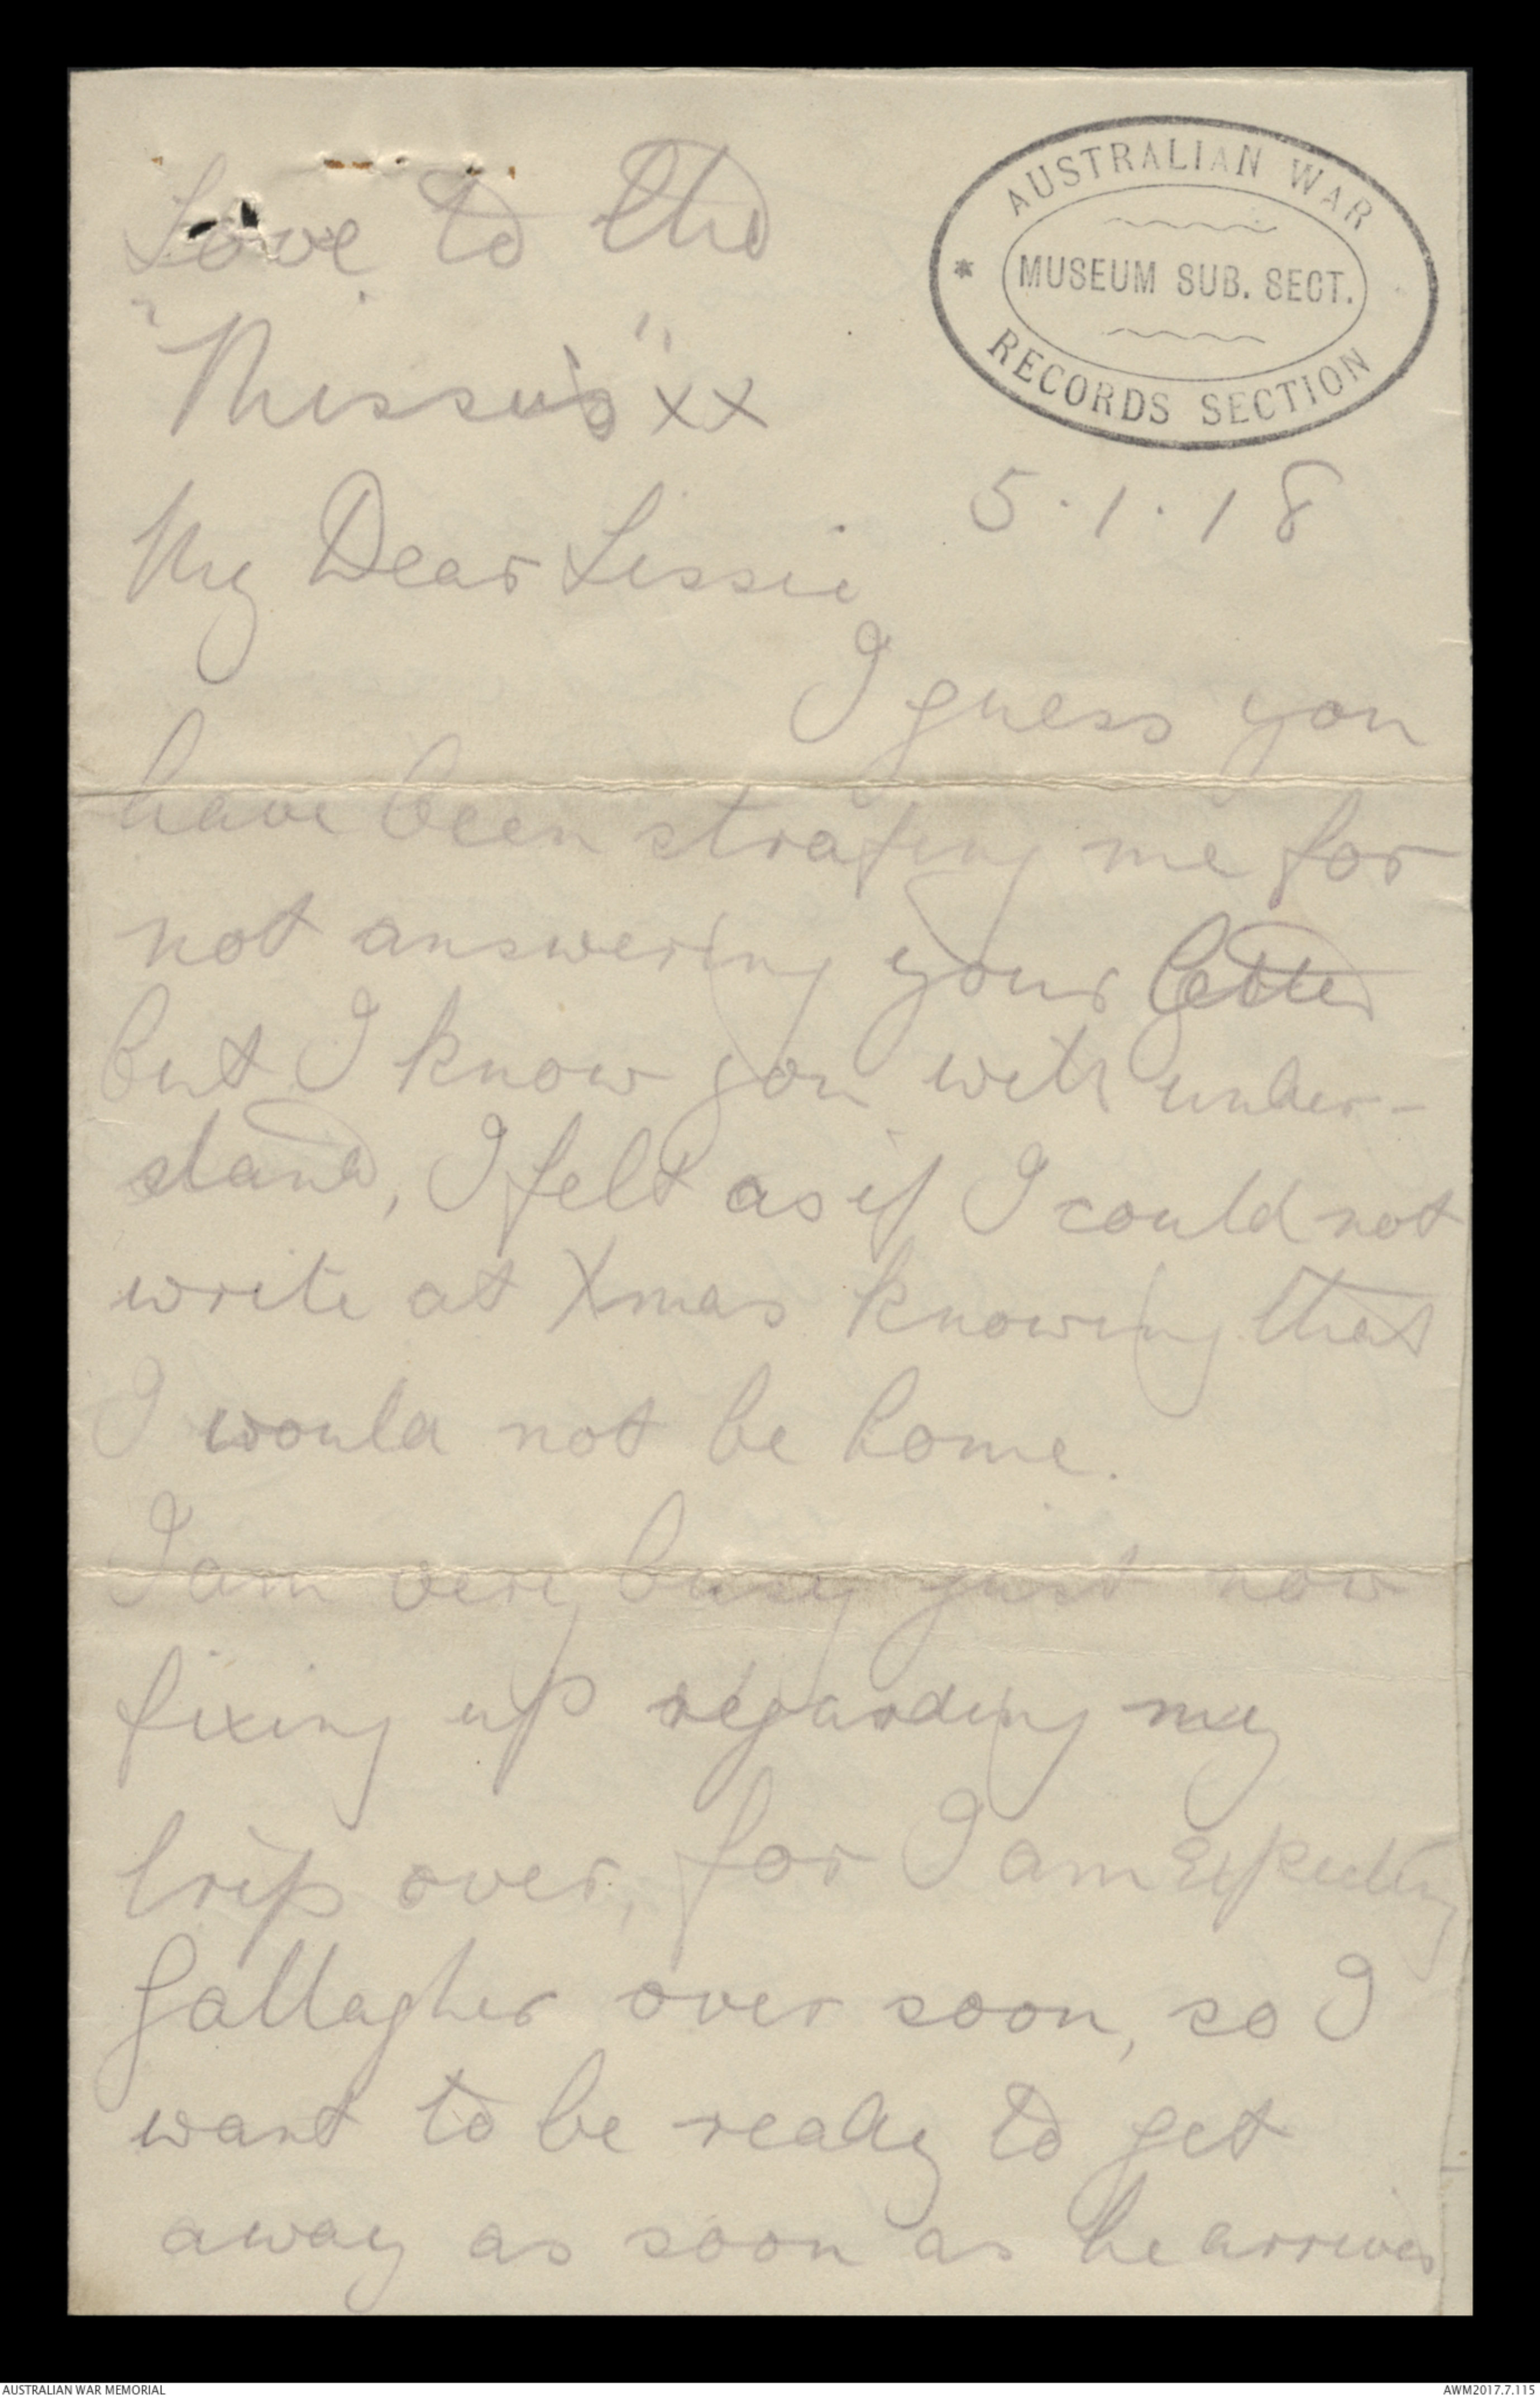 Love to the
"Missus" xx
AUSTRALIAN WAR
MUSEUM SUB. SECT.
RECORDS SECTION
5.1.18
My Dear Lissie
I guess you
have been strafing me for
not answering your letter
but I know you will under-
stand, I felt as if I could not
write at Xmas knowing that
I would not be home.
I am very busy just now
fixing up regarding my
trip over, for I am expecting
Gallagher over soon, so I
want to be ready to get
away as soon as he arrives
AUSTRALIAN WAR MEMORIAL
AWM2017.7.115